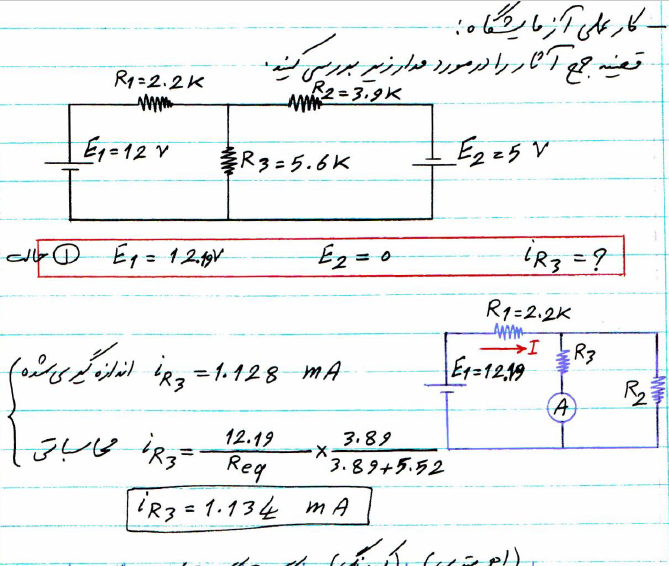 – کار عملی آزمایشگاه:
قضیه جمع آثار را در مورد مدار زیر بررسی کنید.
R1=2.2K
R2=3.9K
E1=12 V
R3=5.6K
E2=5 V
حالت ① E1 = 12.19V E2 = 0 iR3 = ?
R1=2.2K
I
E1=12.19
R3
A
R2
اندازه گیری شده iR3 = 1.128 mA
محاسباتی iR3 = 12.19/Req × 3.89/3.89+5.52
iR3 = 1.134 mA